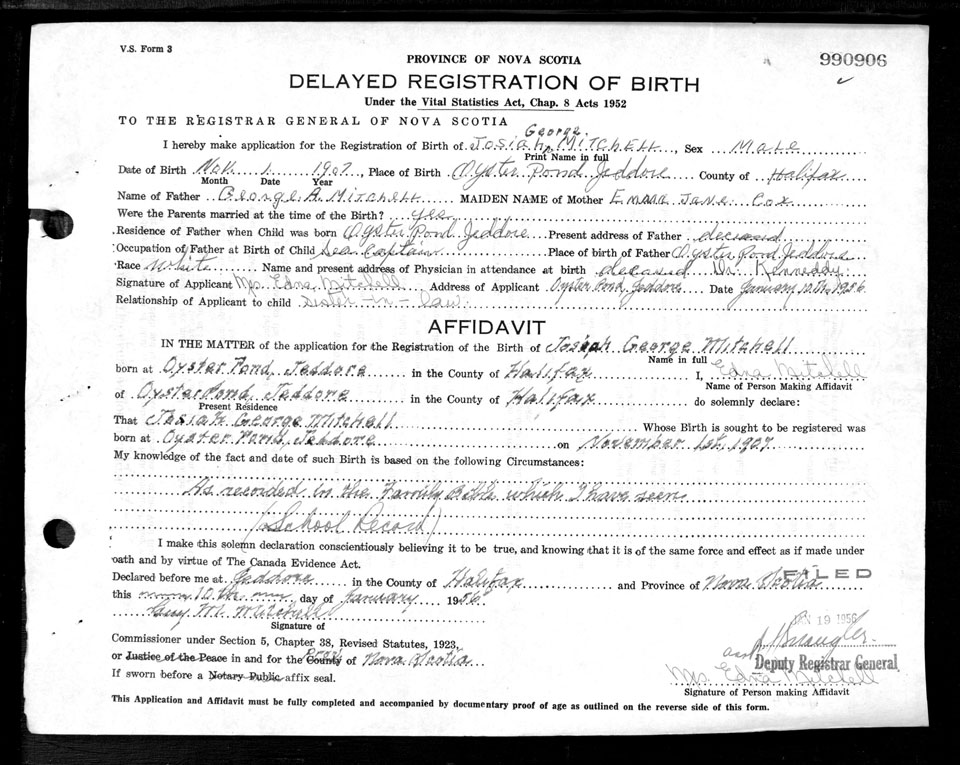 V.S. Form 3
PROVINCE OF NOVA SCOTIA
990906
DELAYED REGISTRATION OF BIRTH
Under the Vital Statistics Act, Chap. 8 Acts 1952
TO THE REGISTRAR GENERAL OF NOVA SCOTIA
George
I hereby make application for the Registration of Birth of Josiah Mitchell, Sex Male
Print Name in full
Date of Birth Nov. 1 1907 Place of Birth Oyster Pond Jeddore County of Halifax
Month Date Year
Name of Father George A. Mitchell MAIDEN NAME of Mother Emma Jane Cox
Were the Parents married at the time of the Birth? yes
Residence of Father when Child was born Oyster Pond Jeddore Present address of Father decised
Occupation of Father at Birth of Child Sea Captain Place of birth of Father Oyster Pond Jeddore
Race White Name and present address of Physician in attendance at birth decised Dr. Kenneddy
Signature of Applicant Mrs. Edna Mitchell Address of Applicant Oyster Pond Jeddore Date January 10th, 1956
Relationship of Applicant to child sister-in-law
AFFIDAVIT
IN THE MATTER of the application for the Registration of the Birth of Josiah George Mitchell
Name in full
born at Oyster Pond, Jeddore in the County of Halifax I, Edna Mitchell
Name of Person Making Affidavit
of Oyster Pond, Jeddore in the County of Halifax do solemnly declare:
Present Residence
That Josiah George Mitchell Whose Birth is sought to be registered was
born at Oyster Pond, Jeddore on November 1st, 1907
My knowledge of the fact and date of such Birth is based on the following Circumstances:
As recorded in the Family Bible which I have seen
(School Record)
I make this solemn declaration conscientiously believing it to be true, and knowing that it is of the same force and effect as if made under
oath and by virtue of The Canada Evidence Act.
FILED
Declared before me at Jeddore in the County of Halifax and Province of Nova Scotia
this 10th day of January 1956
JAN 19 1956
Guy M. Mitchell
Signature of
Commissioner under Section 5, Chapter 38, Revised Statutes, 1923,
or Justice of the Peace in and for the County of Nova Scotia
Deputy Registrar General
If sworn before a Notary Public affix seal.
Mrs. Edna Mitchell
Signature of Person making Affidavit
This Application and Affidavit must be fully completed and accompanied by documentary proof of age as outlined on the reverse side of this form.